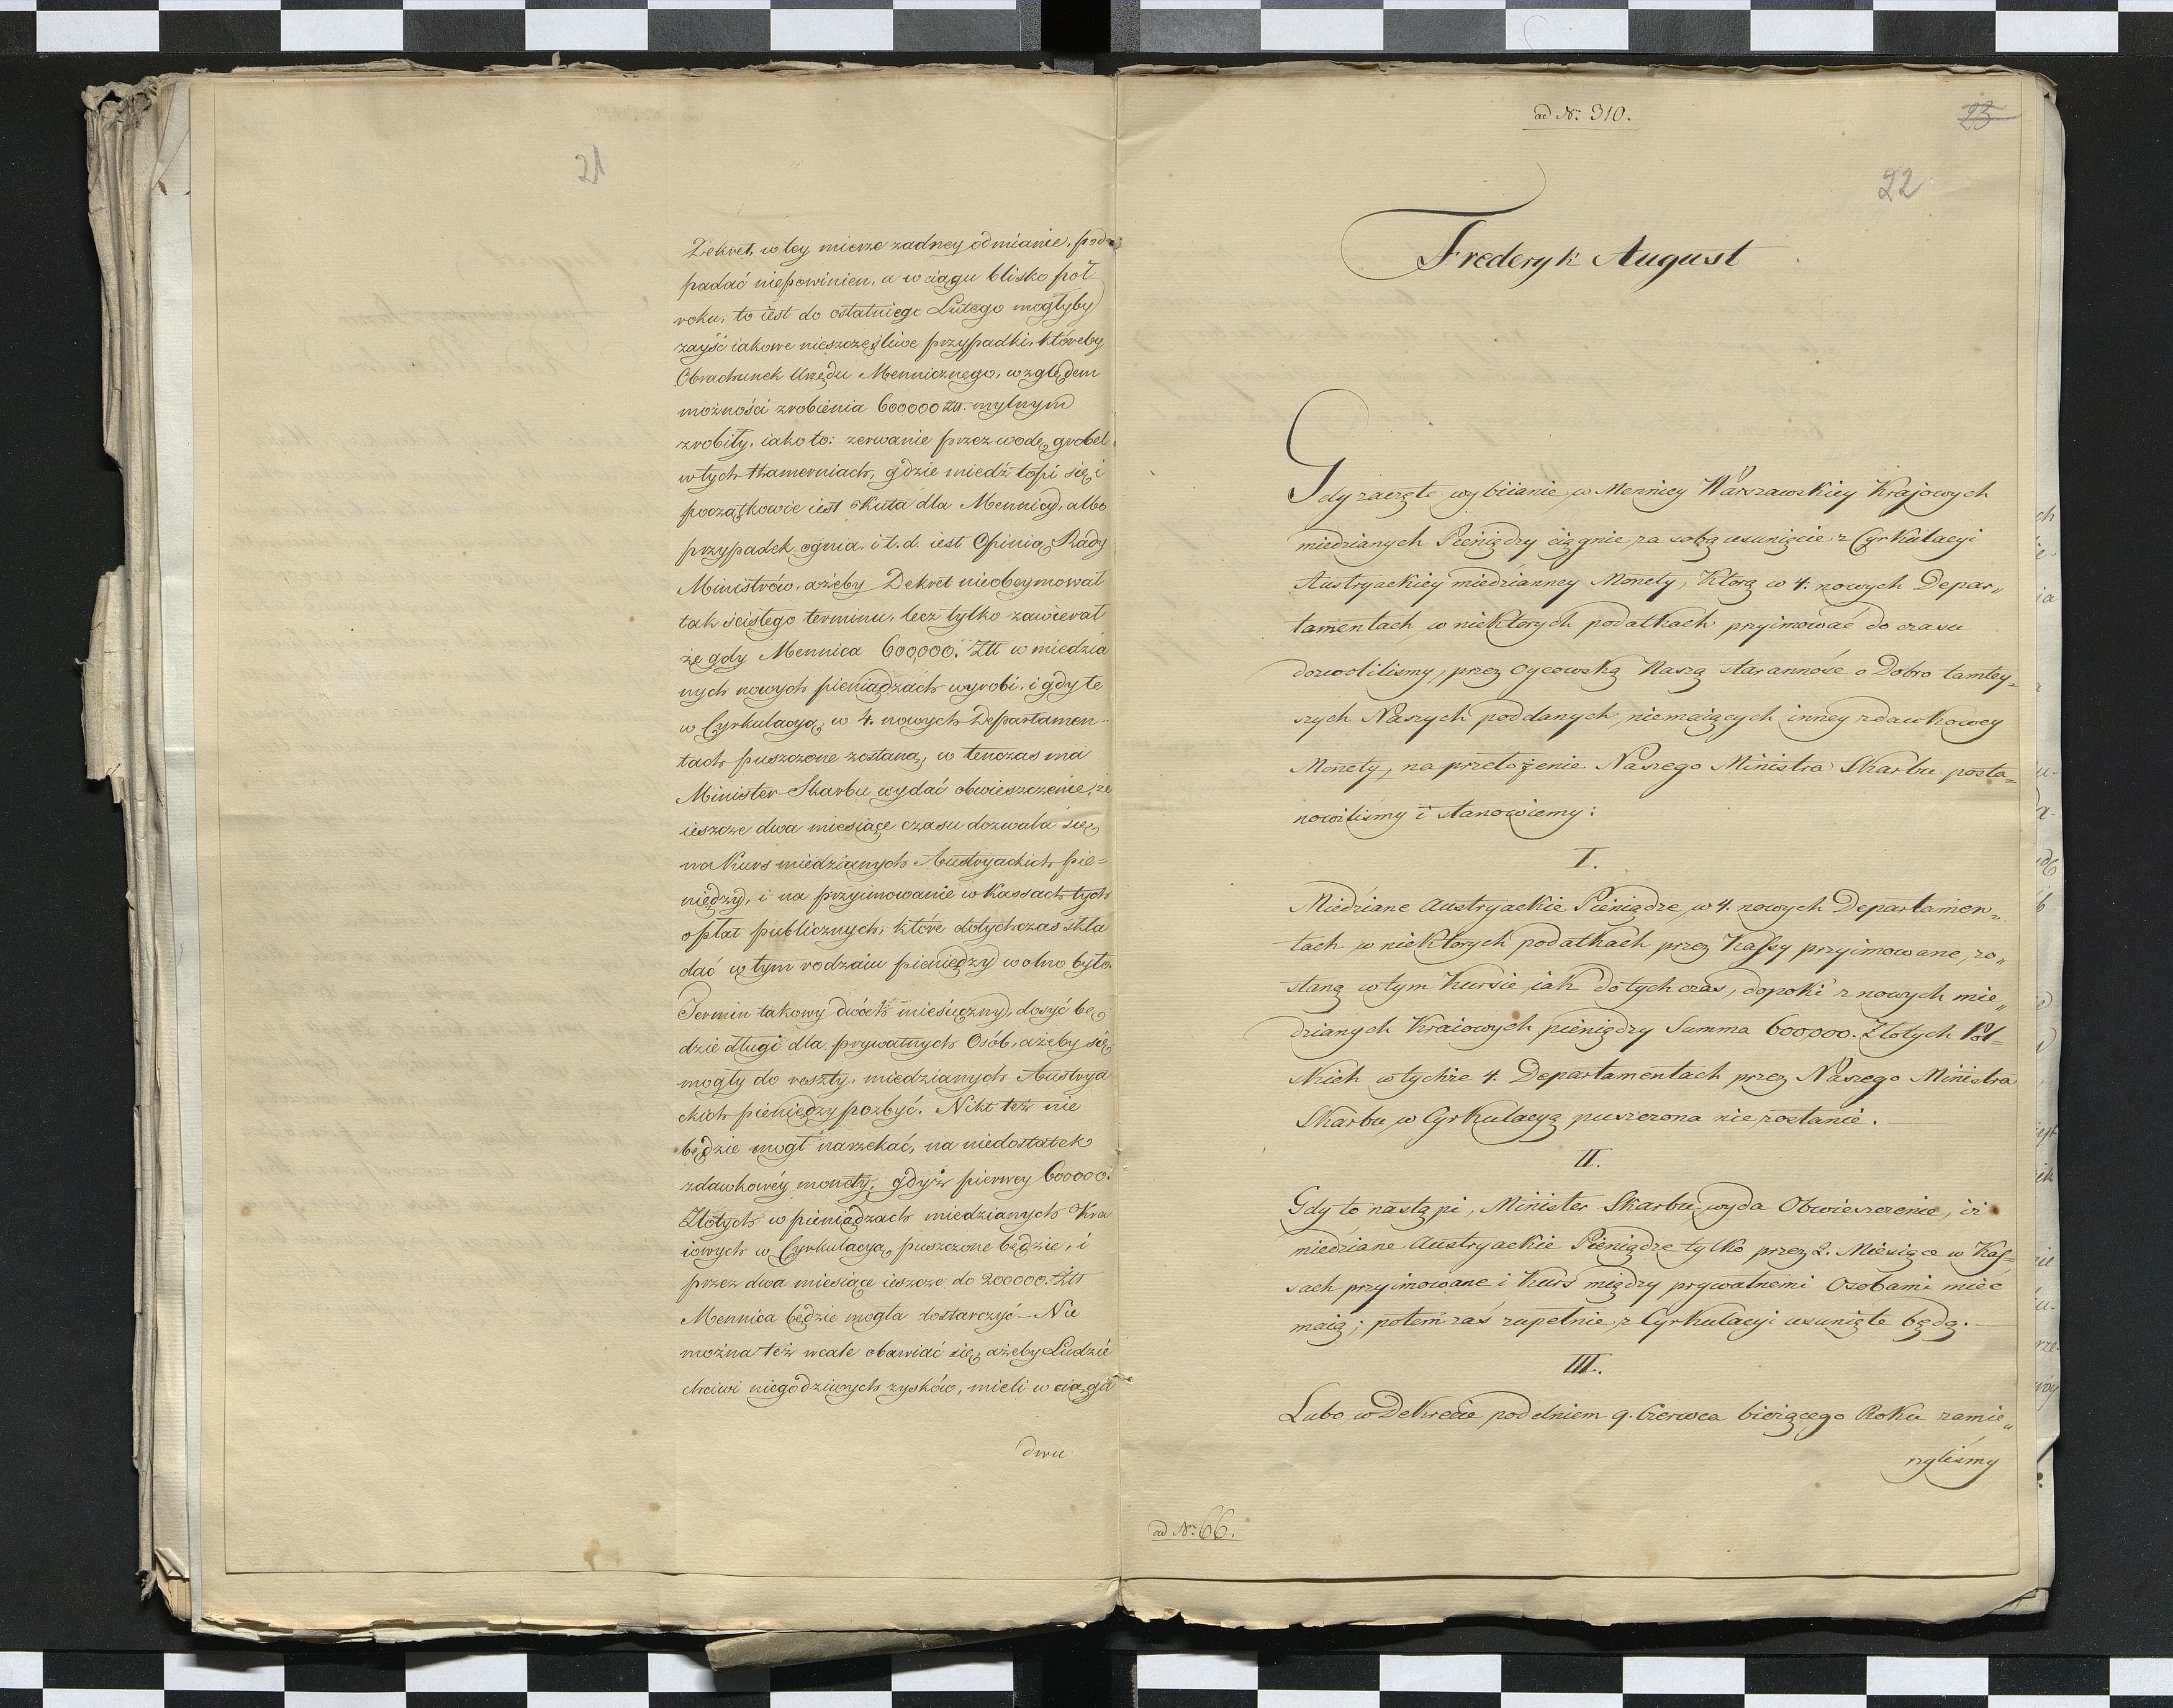 21
Dekret, w tey mierze zadney odmianie, pod
padać niepowinien, a w ciągu blisko pół
roku, to iest do ostatniego Lutego mogłyby
zayść iakowe nieszczęśliwe przypadki, któreby
Obrachunek Urzędu Mennicznego, względem
możności zrobienia 600000 Złł. mylnym
zrobiły, iako to: zerwanie przez wodę grobel
w tych Hamerniach, gdzie miedź topi się i
początkowie iest kuta dla Mennicy, albo
przypadek ognia. i t. d. iest Opinią Rady
Ministrów, ażeby Dekret nieobeymował
tak ścisłego terminu, lecz tylko zawierał
że gdy Mennica 600,000. Złł w miedzia
nych nowych pieniądzach wyrobi, i gdy te
w Cyrkulacyą w 4. nowych Departamen-
tach puszczone zostaną, w tenczas ma
Minister Skarbu wydać obwieszczenie, że
ieszcze dwa miesiące czasu dozwala się
na Kurs miedzianych Austryackich pie=
niędzy, i na przyimowanie w Kassach tych
opłat publicznych, które dotychczas skła
dać w tym rodzaiu pieniędzy wolno było.
Termin takowy dwóch miesięczny, dosyć bę
dzie długi dla prywatnych Osób, ażeby się
mogły do reszty, miedzianych Austrya
ckich pieniędzy pozbyć. Nikt też nie
będzie mogł narzekać, na niedostatek
zdawkowéy monety, gdyż pierwey 600000.
Złotych w pieniądzach miedzianych Kra
iowych w Cyrkulacyą puszczone będzie, i
przez dwa miesiące ieszcze do 200000. Złł
Mennica będzie mogła dostarczyć - Nie
można też wcale obawiać się, ażeby Ludzie
chciwi niegodziwych zysków, mieli w ciągu
dwu
ad Nr. 310.
23
22
Frederyk August
Gdy zaczęte wybiianie w Mennicy Warszawskiey Krajowych
miedzianych Pieniędzy ciągnie za sobą usunięcie z Cyrkulacyi
Austryackiey miedzianney Monety, Którą w 4. nowych Depar„
tamentach w niektorych podatkach przyimować do czasu
dozwoliliśmy, przez Oycowską Naszą staranność o Dobro tamtey=
szych Naszych poddanych, niemaiących inney zdawkowey
Monety, na przełożenie Naszego Ministra Skarbu posta=
nowiliśmy i stanowiemy:
I.
Miedziane Austryackie Pieniądze w 4. nowych Departamen„
tach w niektorych podatkach przez Kassy przyimowane, zo„
staną w tym Kursie iak dotychczas, dopoki z nowych mie„
dzianych Kraiowych pieniędzy Summa 600,000. Złotych Pol=
skich w tychże 4. Departamentach przez Naszego Ministra
Skarbu w Cyrkulacyą puszczona nie zostanie.
II.
Gdy to nastąpi, Minister Skarbu wyda Obwieszczenie, iż
miedziane Austryackie Pieniądze tylko przez 2. Miesiące w Kas=
sach przyimowane i Kurs między prywatnemi Osobami mieć
maią; potem zaś zupełnie z Cyrkulacyi usunięte będą.
III.
Lubo w Dekrecie pod dniem 9. Czerwca bieżącego Roku zamie„
rzyliśmy
ad Nr. 66.